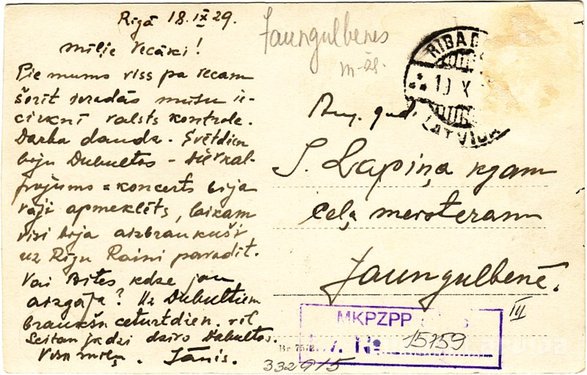 Rīgā 18.IX29.
Mīļie Vecāki!
Pie mums viss pa vecam
šorīt ieradās mūsu ie-
cirknī valsts kontrole.
Darba daudz. Svētdien
biju Dubultos - Dievkal-
pojums = koncerts bija
vāji apmeklēts, laikam
visi bija aizbraukuši
uz Rīgu Raini pavadīt.
Vai Bites kdze jau
aizgāja? Uz Dubultiem
braukšu ceturtdien, vēl
dzīvo Dubultos.
Jānis.
Jaungulbenes
m-ža.
RIGA
LATVIJA
Augsti god.
J. Lapiņa kgam
ceļa meisteram
Jaungulbenē.
III
MKPZPP
№ 15159
332915